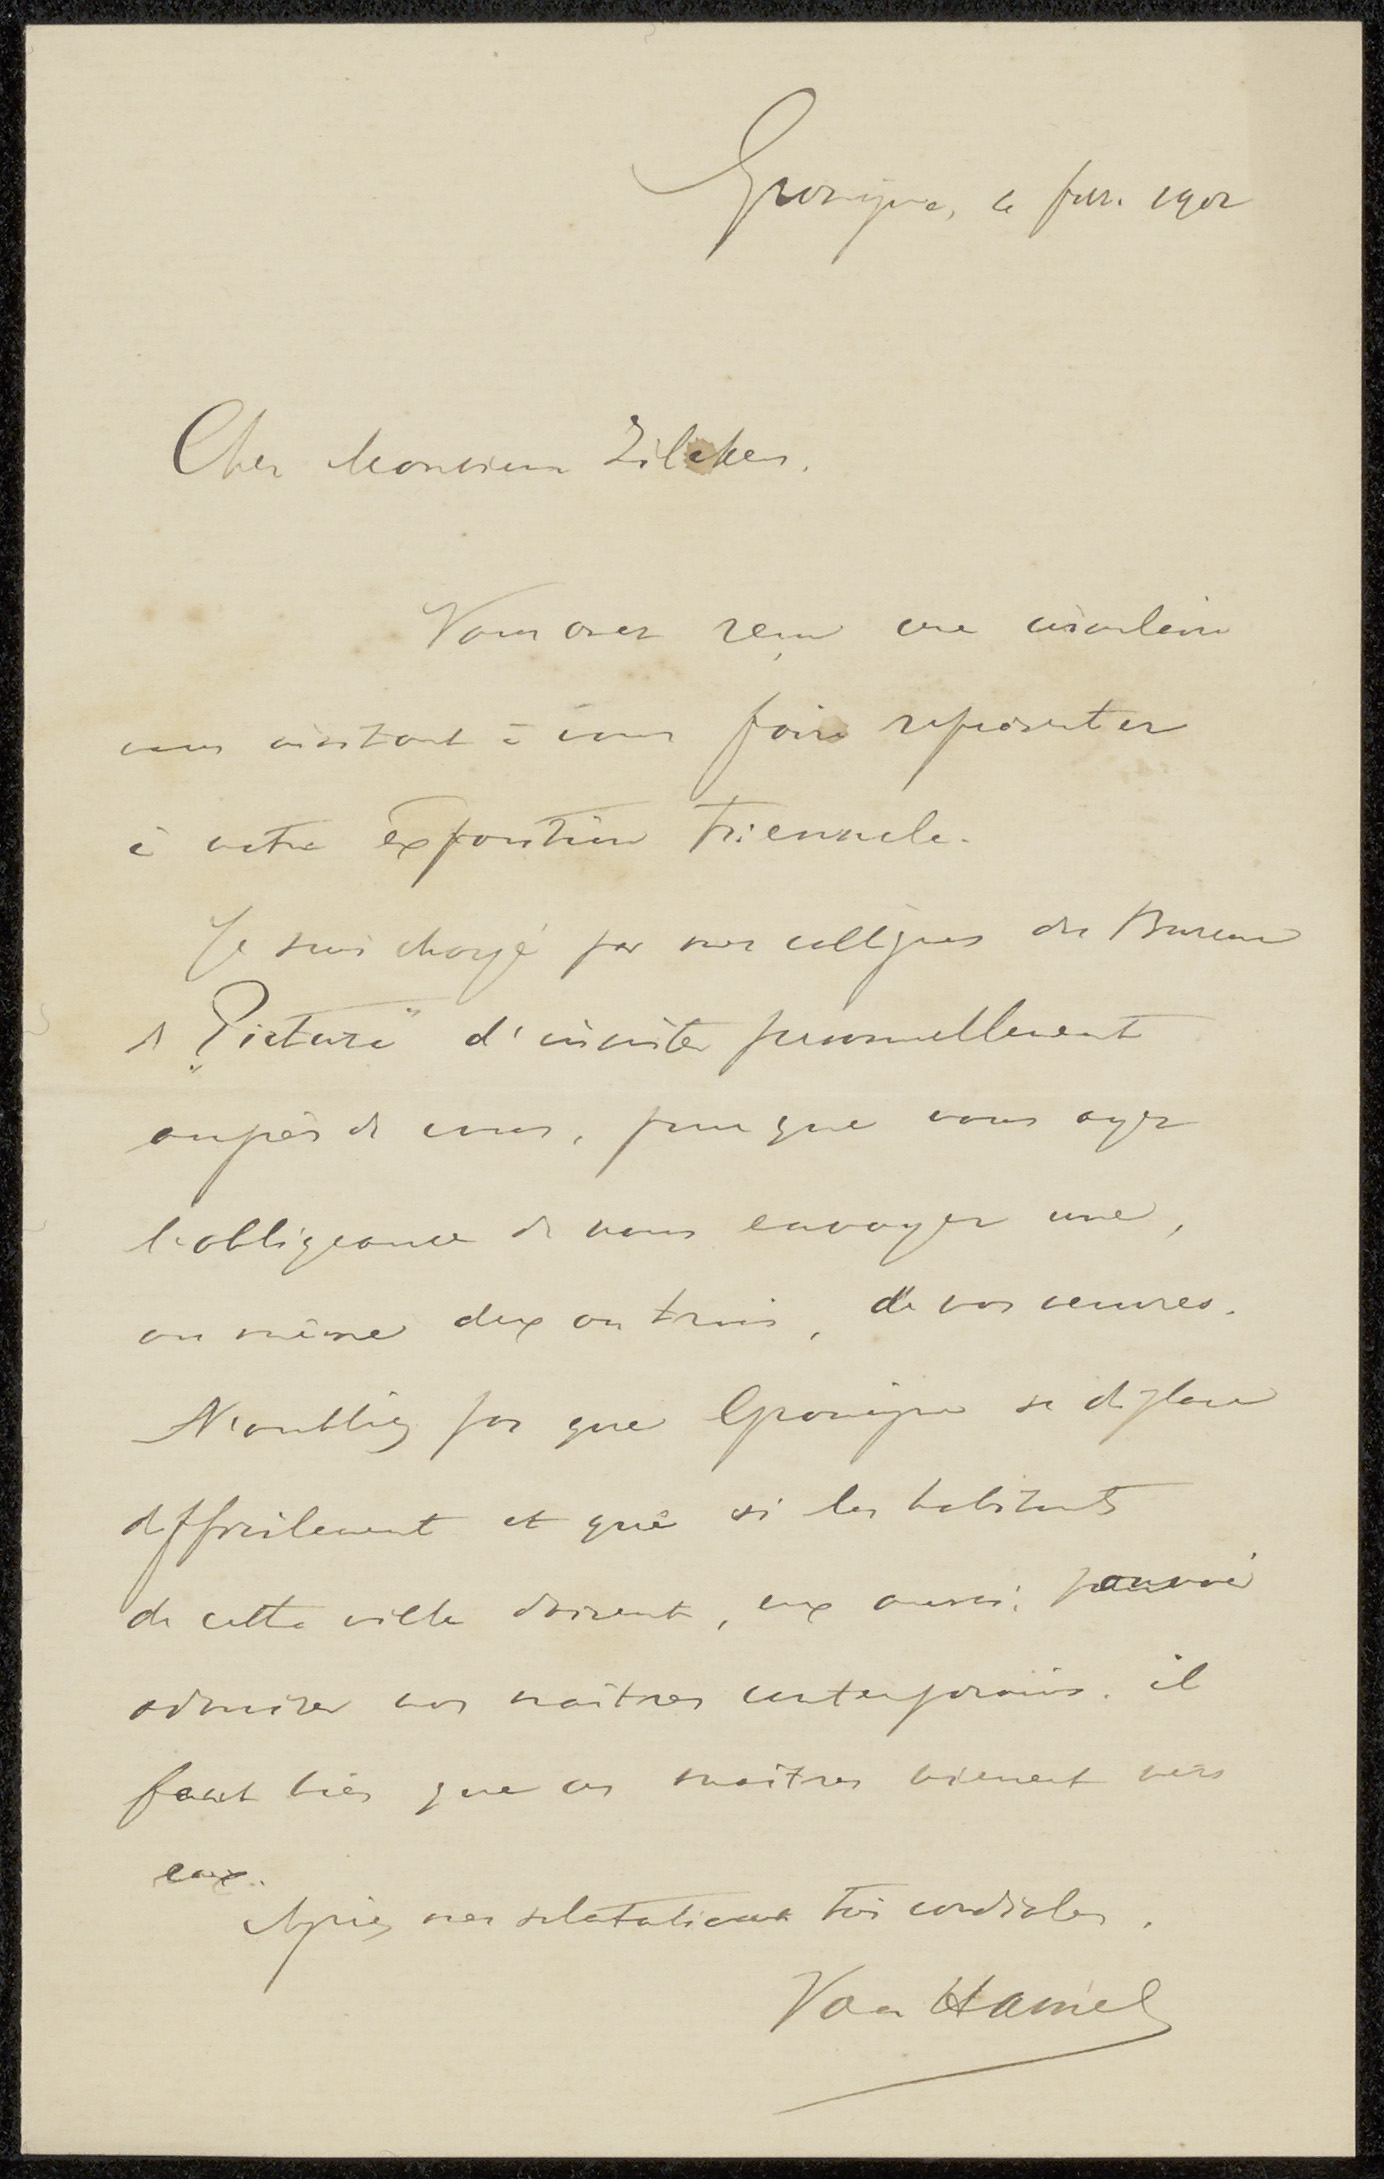 Groningue, 4 févr. 1902
Cher Monsieur Zilcken.
Vous avez reçu une circulaire
vous invitant à vous faire représenter
à notre exposition triennale.
Je suis chargé par mes collègues du Bureau
de „Pictura" d'insister personnellement
auprès de vous, pour que vous ayez
l'obligeance de nous envoyer une,
ou même deux ou trois, de vos œuvres.
N'oubliez pas que Groningue se déplace
difficilement et que si les habitants
de cette ville doivent, eux aussi, pouvoir
admirer nos maîtres contemporains, il
faut bien que ces maîtres viennent vers
eux.
Agréez mes salutations très cordiales.
Van Hamel